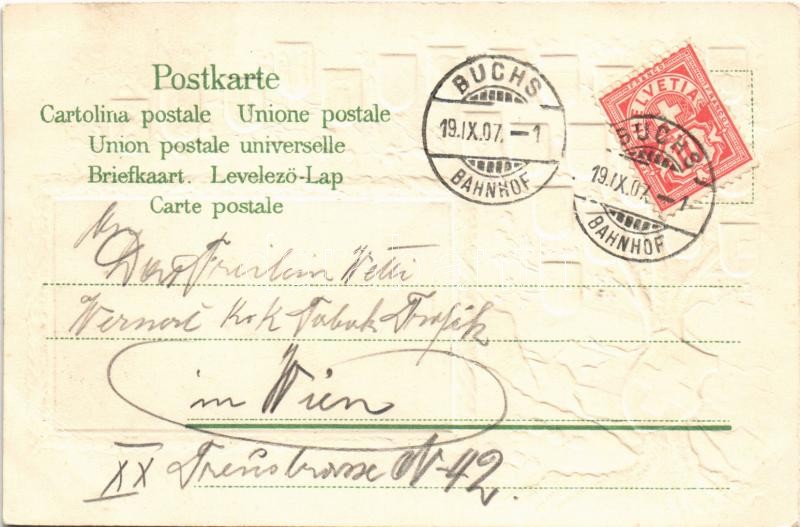 Postkarte
Cartolina postale Unione postale
Union postale universelle
Briefkaart. Levelezö-Lap
Carte postale
BUCHS
19.IX.07.—1
BAHNHOF
FRANCO
HELVETIA
BUCHS
19.IX.07.—1
BAHNHOF
An
Freilein Wetti
Wernert K.K Tabak Trafik
in Wien
XX N 42.